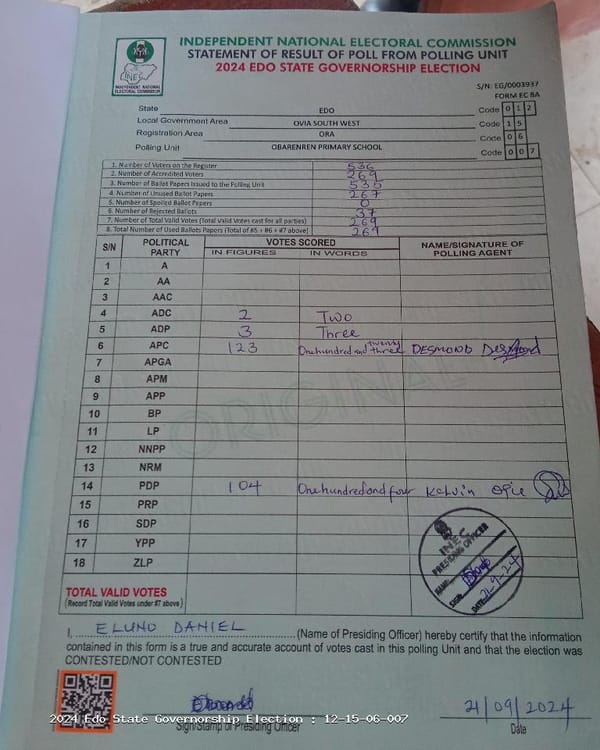 INDEPENDENT NATIONAL ELECTORAL COMMISSION
STATEMENT OF RESULT OF POLL FROM POLLING UNIT
2024 EDO STATE GOVERNORSHIP ELECTION
INEC
INDEPENDENT NATIONAL
ELECTORAL COMMISSION
S/N: EG/0003937
FORM EC 8A
State EDO Code 0 1 2
Local Government Area OVIA SOUTH WEST Code 1 5
Registration Area ORA Code 0 6
Polling Unit OBARENREN PRIMARY SCHOOL Code 0 0 7
1. Number of Voters on the Register 536
2. Number of Accredited Voters 269
3. Number of Ballot Papers Issued to the Polling Unit 536
4. Number of Unused Ballot Papers 267
5. Number of Spoiled Ballot Papers 0
6. Number of Rejected Ballots 37
7. Number of Total Valid Votes (Total Valid Votes cast for all parties) 269
8. Total Number of Used Ballots Papers (Total of #5 + #6 + #7 above) 269
S/N POLITICAL PARTY VOTES SCORED NAME/SIGNATURE OF POLLING AGENT
IN FIGURES IN WORDS
1 A
2 AA
3 AAC
4 ADC 2 Two
5 ADP 3 Three
6 APC 123 One hundred and twenty three DESMOND Desmond
7 APGA
8 APM
9 APP
10 BP
11 LP
12 NNPP
13 NRM
14 PDP 104 One hundred and four Kelvin Ogie
15 PRP
16 SDP
17 YPP
18 ZLP
ORIGINAL
INEC
PRESIDING OFFICER
NAME:
SIGN:
DATE: 21-9-24
TOTAL VALID VOTES
(Record Total Valid Votes under #7 above)
I, ELUNO DANIEL (Name of Presiding Officer) hereby certify that the information
contained in this form is a true and accurate account of votes cast in this polling Unit and that the election was
CONTESTED/NOT CONTESTED
21/09/2024
Sign/Stamp of Presiding Officer Date
2024 Edo State Governorship Election : 12-15-06-007